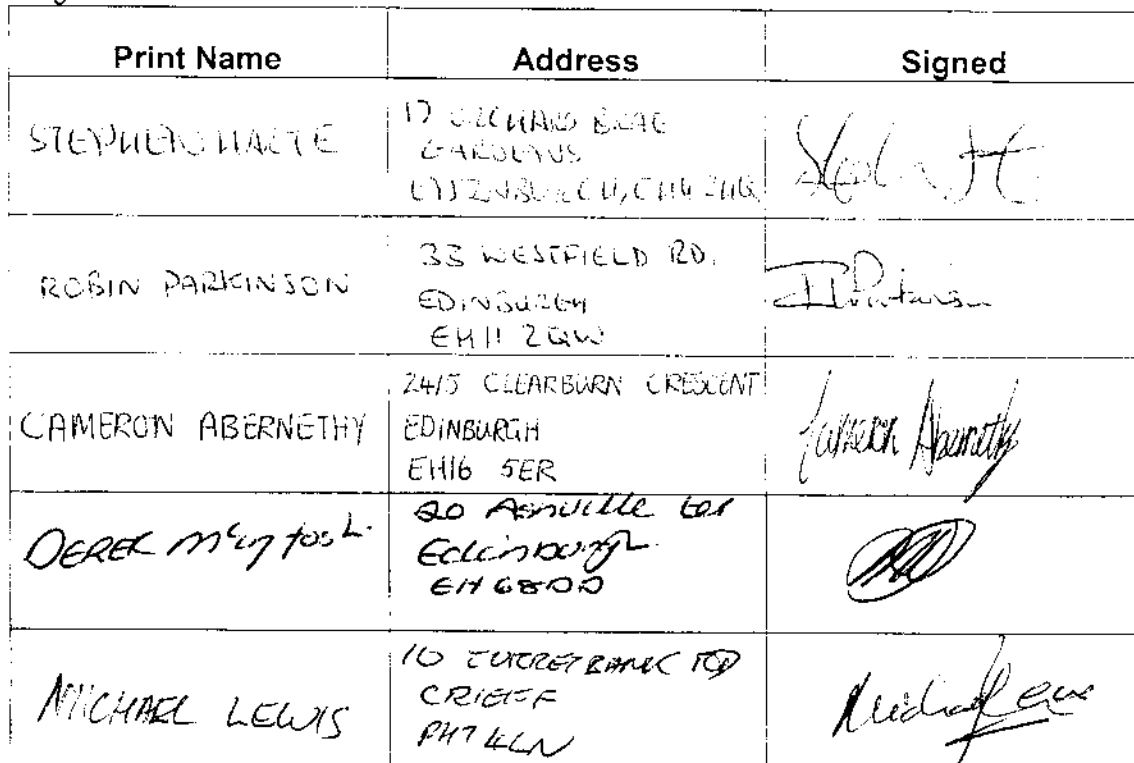 Print Name Address Signed
STEPHEN HARTE
17 ORCHARD BRAE
GARDENS
EDINBURGH, EH4 2HQ
ROBIN PARKINSON
33 WESTFIELD RD.
EDINBURGH
EH11 2QW
CAMERON ABERNETHY
24/5 CLEARBURN CRESCENT
EDINBURGH
EH16 5ER
Cameron Abernethy
DEREK McIntosh
20 Ashville ter
Edinburgh
EH6 8DD
MICHAEL LEWIS
10 TURRETBANK RD
CRIEFF
PH7 4LN
Michael Lewis